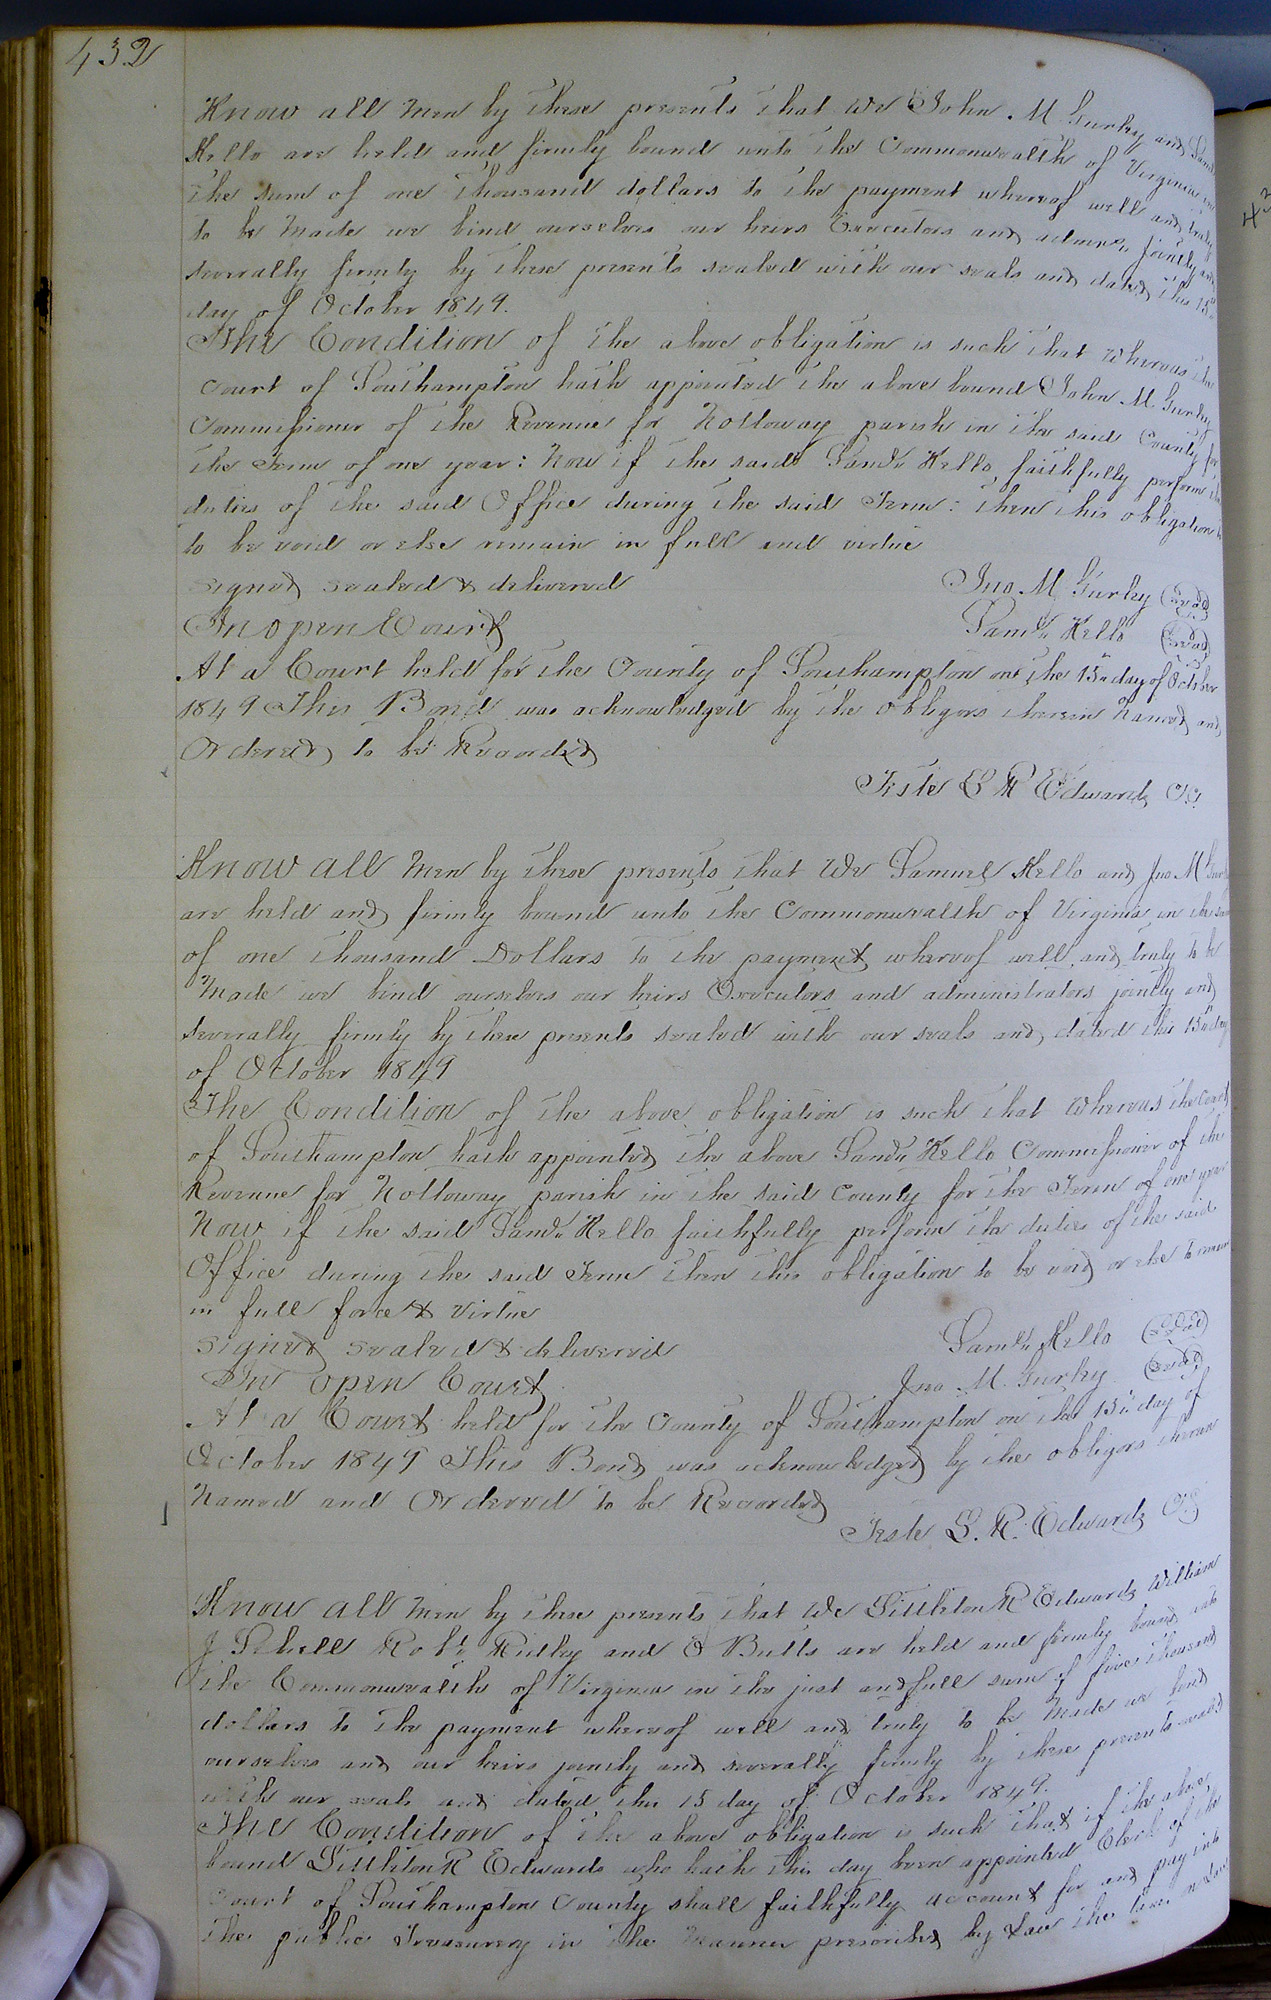 432
Know all men by these presents that we John M Gurley and Saml
Kello are held and firmly bound unto the Commonwealth of Virginia in
the sum of one thousand dollars to the payment whereof well and truly
to be made we bind ourselves our heirs Executors and admrs jointly and
severally firmly by these presents sealed with our seals and dated this 15th
day of October 1849.
The Condition of the above obligation is such that whereas the
Court of Southampton hath appointed the above bound John M Gurley
Commissioner of the Revenue for Nottoway parish in the said County for
the Term of one year: Now if the said Saml Kello faithfully perform the
duties of the said Office during the said Term: then this obligation
to be void or else remain in full and virtue
signed sealed & delivered Jno M Gurley (Seal)
In open Court Saml Kello (Seal)
At a Court held for the County of Southampton on the 15th day of October
1849 This Bond was acknowledged by the obligors therein Named and
Ordered to be Recorded
Teste L R Edwards CC
Know all men by these presents that We Samuel Kello and Jno M Gurley
are held and firmly bound unto the Commonwealth of Virginia in the sum
of one thousand Dollars to the payment whereof well and truly to be
Made we bind ourselves our heirs Executors and administrators jointly and
severally firmly by these presents sealed with our seals and dated this 15th day
of October 1849
The Condition of the above obligation is such that Whereas the Court
of Southampton hath appointed the above Saml Kello Commissioner of the
Revenue for Nottoway parish in the said County for the Term of one year
Now if the said Saml Kello faithfully perform the duties of the said
Office during the said Term then this obligation to be void or else to remain
in full force & virtue
signed sealed & delivered Saml Kello (Seal)
In open Court Jno M. Gurley (Seal)
At a Court held for the County of Southampton on the 15th day of
October 1849 This Bond was acknowledged by the obligors therein
Named and Ordered to be Recorded
Teste L. R. Edwards CC
Know all men by these presents that We Littleton R Edwards William
J Sebrell Robt Ridley and Butts are held and firmly bound unto
the Commonwealth of Virginia in the just and full sum of five thousand
dollars to the payment whereof well and truly to be Made we bind
ourselves and our heirs jointly and severally firmly by these presents sealed
with our seals and dated this 15 day of October 1849.
The Condition of the above obligation is such that if the above
bound Littleton R Edwards who hath this day been appointed Clerk of the
Court of Southampton County shall faithfully account for and pay into
the public Treasurery in the Manner prescribed by Law the taxes